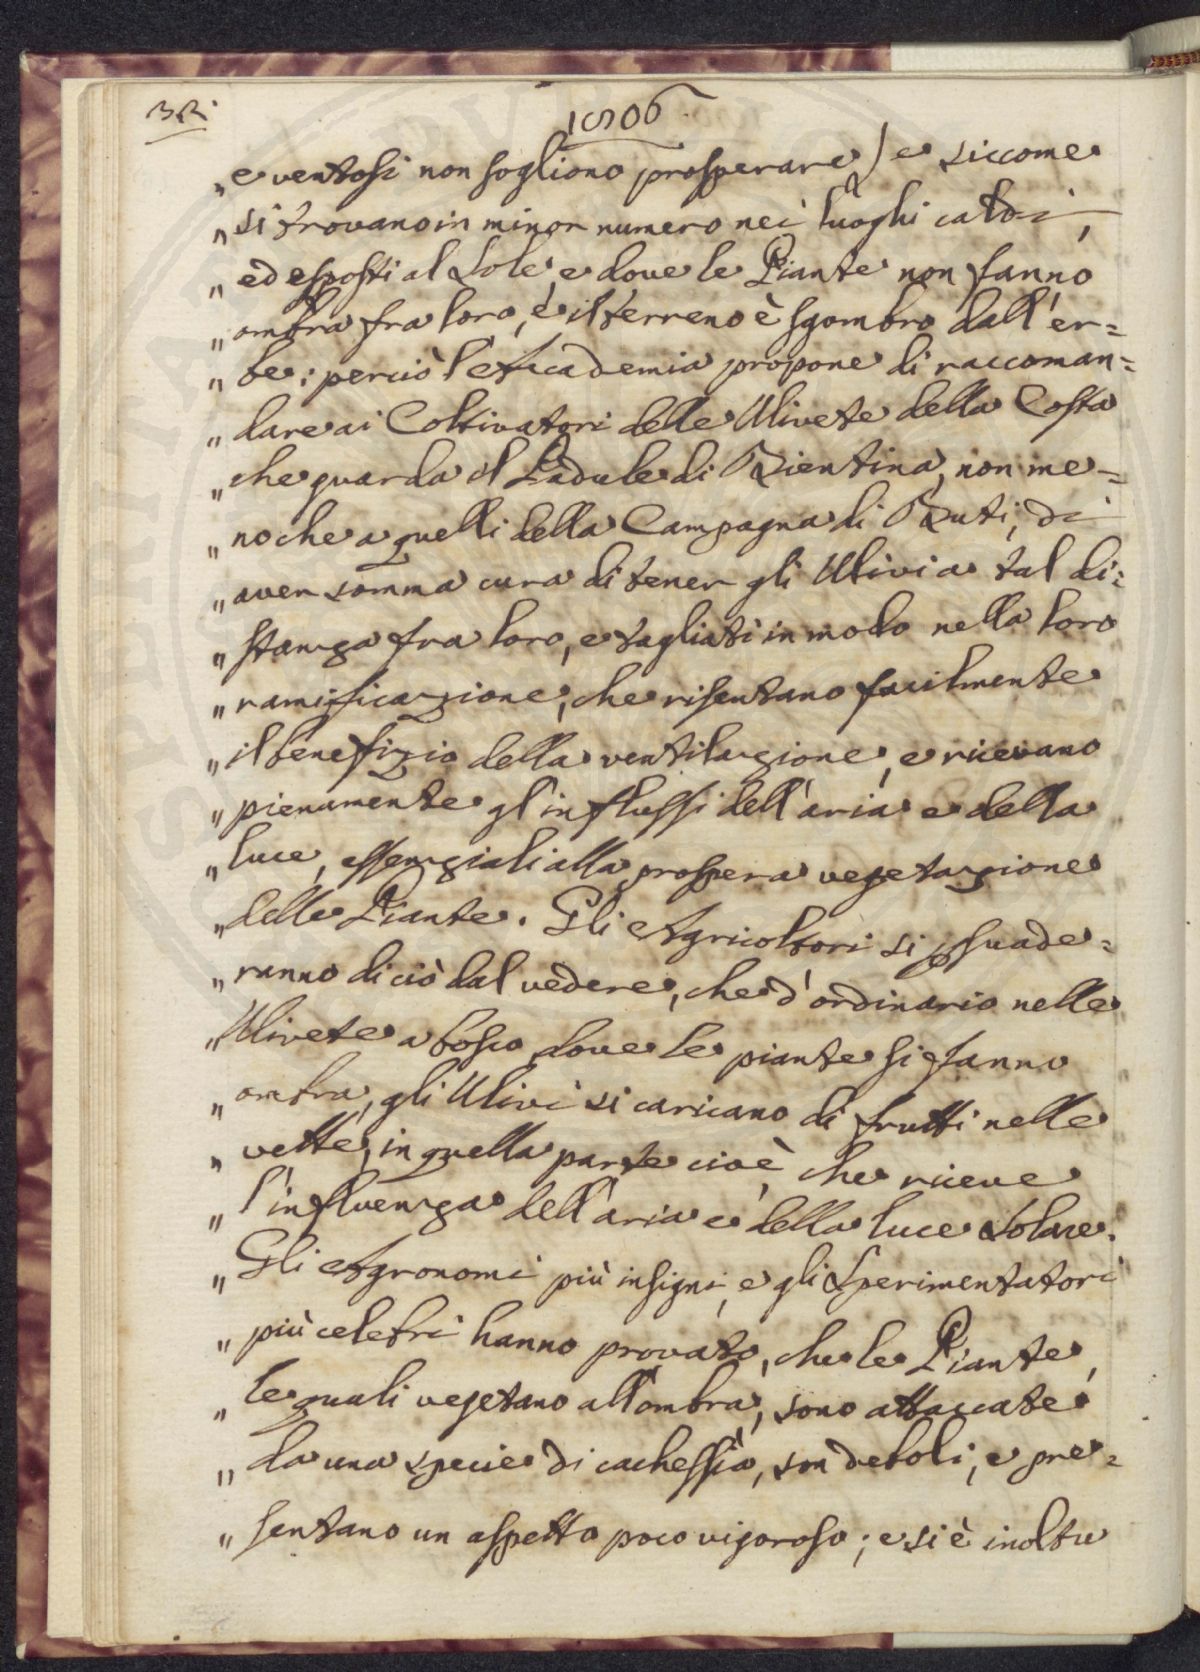 32.
1806
„ e ventosi non sogliono prosperare) e siccome
„ si trovano in minor numero nei luoghi caldi,
„ ed esposti al Sole, e dove le Piante non fanno
„ ombra fra loro, e il terreno è sgombro dall'er=
„ be; perciò l'Accademia propone di raccoman=
„ dare ai Coltivatori delle Ulivete della Costa
„ che guarda il Padule di Bientina, non me=
„ no che a quelli della Campagna di Buti, di
„ aver somma cura di tener gli Ulivi a tal di=
„ stanza fra loro, e tagliati in modo nella loro
„ ramificazione, che risentano facilmente
„ il benefizio della ventilazione, e ricevano
„ pienamente gl'influssi dell'aria e della
„ luce, essenziali alla prospera vegetazione
„ delle Piante. Gli Agricoltori si psuade=
„ ranno di ciò dal vedere, che d'ordinario nelle
„ Ulivete a bosco dove le piante si fanno
„ ombra, gli Ulivi si caricano di frutti nelle
„ vette, in quella parte cioè, che riceve
„ l'influenza dell'aria e della luce Solare.
„ Gli Agronomi più insigni, e gli Sperimentatori
„ più celebri hanno provato, che le Piante,
„ le quali vegetano all'ombra, sono attaccate
„ da una specie di cachessia, son deboli, e pre=
„ sentano un aspetto poco vigoroso; e si è inoltre